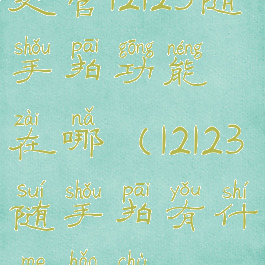 交管12123随
shǒu pāi gōng néng
手拍功能
zài nǎ
在哪 (12123
suí shǒu pāi yǒu shí
随手拍有什
me hǎo chù